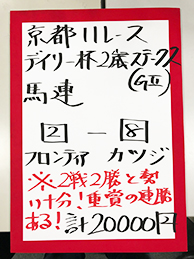 京都11レース
デイリー杯2歳ステークス
(GⅡ)
馬連
2 - 8
フロンティア カツジ
※2戦2勝と勢
い十分!重賞の連勝
ある!計20000円